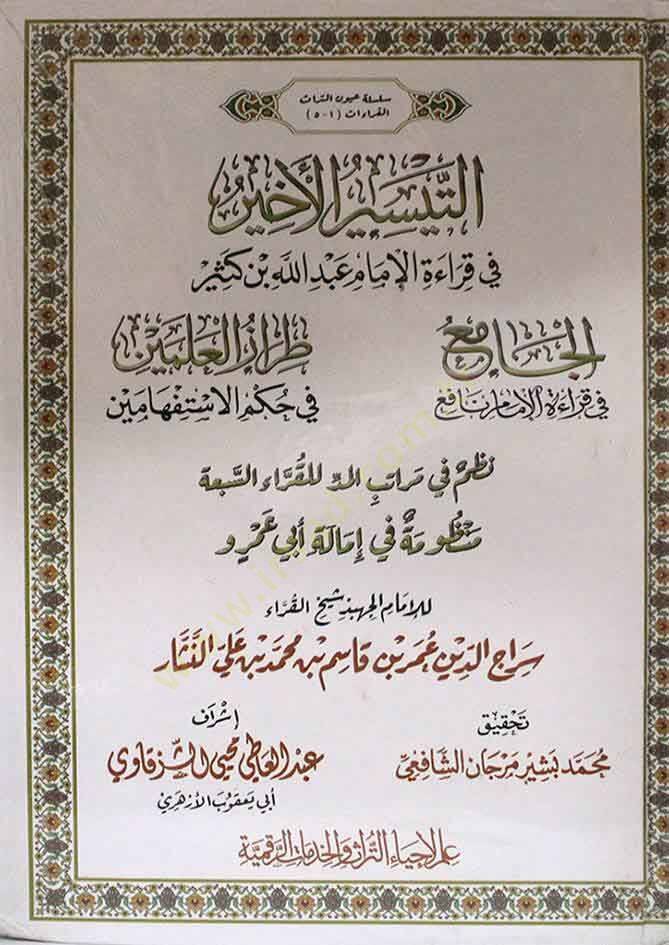 سلسلة عيون التراث
القراءات (١-٥)
التَّيْسِيرُ الأَخِيرُ
في قِرَاءَةِ الإِمَامِ عَبْدِ اللَّهِ بْنِ كَثِيْرٍ
الجَامِعُ
في قِرَاءَةِ الإِمَامِ نَافِعٍ
طِرَازُ العَلَمَيْنِ
في حُكْمِ الاسْتِفْهَامَيْنِ
نظمٌ في مراتبِ المدِّ للقُرَّاءِ السَّبعة
مَنْظُومَةٌ في إِمَالَةِ أَبي عَمْرٍو
للإمام الجهبذ شيخ القُرَّاء
سراج الدين عُمر بن قاسم بن محمد بن علي النَّشَّار
تحقيق
مُحمَّد بشير مرجان الشافعيّ
إشراف
عبد العاطي محيي الشَّرقاوي
أبي يعقوب الأزهري
علم لإحياء التراث والخدمات الرقمية